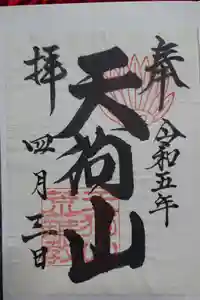 奉拝
天狗山
令和五年
四月三日